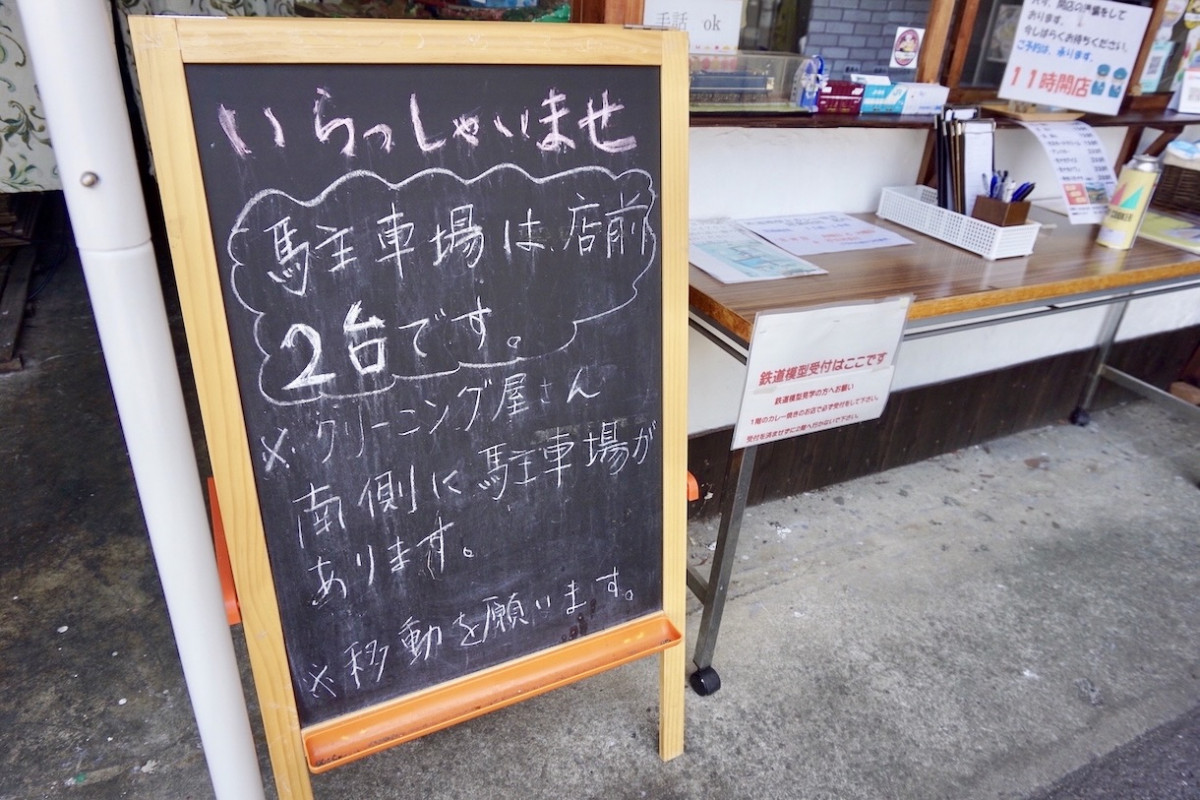 いらっしゃいませ
駐車場は店前
2台です。
※クリーニング屋さん
南側に駐車場が
あります。
※移動を願います。
手話 ok
只今、開店の準備をして
おります。
今しばらくお待ちください。
ご予約は、承ります。
11時開店
鉄道模型受付はここです
鉄道模型見学の方へお願い
1階のカレー焼きのお店で必ず受付をして下さい。
受付を済ませずに2階へ行かないで下さい。